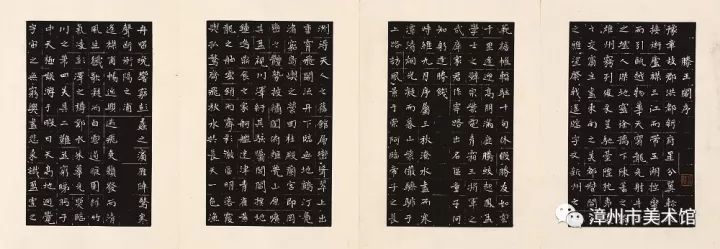 滕王閣序
豫章故郡洪都新府星分翼軫
地接衡廬襟三江而帶五湖控蠻
荊而引甌越物華天寶龍光射牛斗
之墟人傑地靈徐孺下陳蕃之榻
雄州霧列俊采星馳臺隍枕夷夏
之交賓主盡東南之美都督閻公
之雅望棨戟遙臨宇文新州之
懿範襜帷暫駐十旬休暇勝友如雲
千里逢迎高朋滿座騰蛟起鳳孟
學士之詞宗紫電青霜王將軍之
武庫家君作宰路出名區童子何
知躬逢勝餞
時維九月序屬三秋潦水盡而寒
潭清煙光凝而暮山紫儼驂騑于
上路訪風景于崇阿臨帝子之長
洲得天人之舊館層巒聳翠上出
重霄飛閣流丹下臨無地鶴汀鳧
渚窮島嶼之縈回桂殿蘭宮即岡
巒之體勢披繡闥俯雕甍山原曠
其盈視川澤紆其駭矚閭閻撲地
鐘鳴鼎食之家舸艦迷津青雀黃
龍之舳虹銷雨霽彩徹區明落霞
與孤鶩齊飛秋水共長天一色漁
舟唱晚響窮彭蠡之濱雁陣驚寒
聲斷衡陽之浦
遙襟甫暢逸興遄飛爽籟發而清
風生纖歌凝而白雲遏睢園綠竹
氣凌彭澤之樽鄴水朱華光照臨
川之筆四美具二難并窮睇眄于
中天極娛游于暇日天高地迥覺
宇宙之無窮興盡悲來識盈虛之
漳州市美术馆